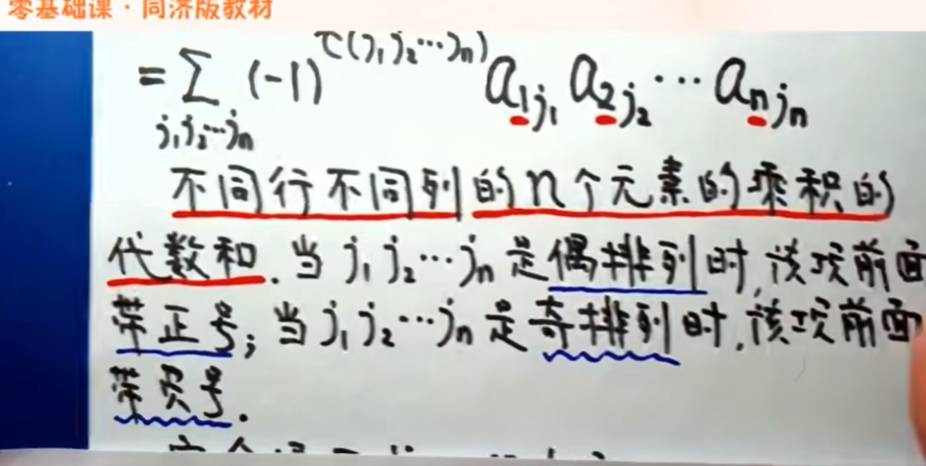 零基础课·同济版教材
= Σ (-1)^τ(j₁j₂…jₙ) a₁j₁ a₂j₂ … aₙjₙ
j₁j₂…jₙ
不同行不同列的n个元素的乘积的
代数和. 当 j₁j₂…jₙ 是偶排列时, 该项前面
带正号; 当 j₁j₂…jₙ 是奇排列时, 该项前面
带负号.